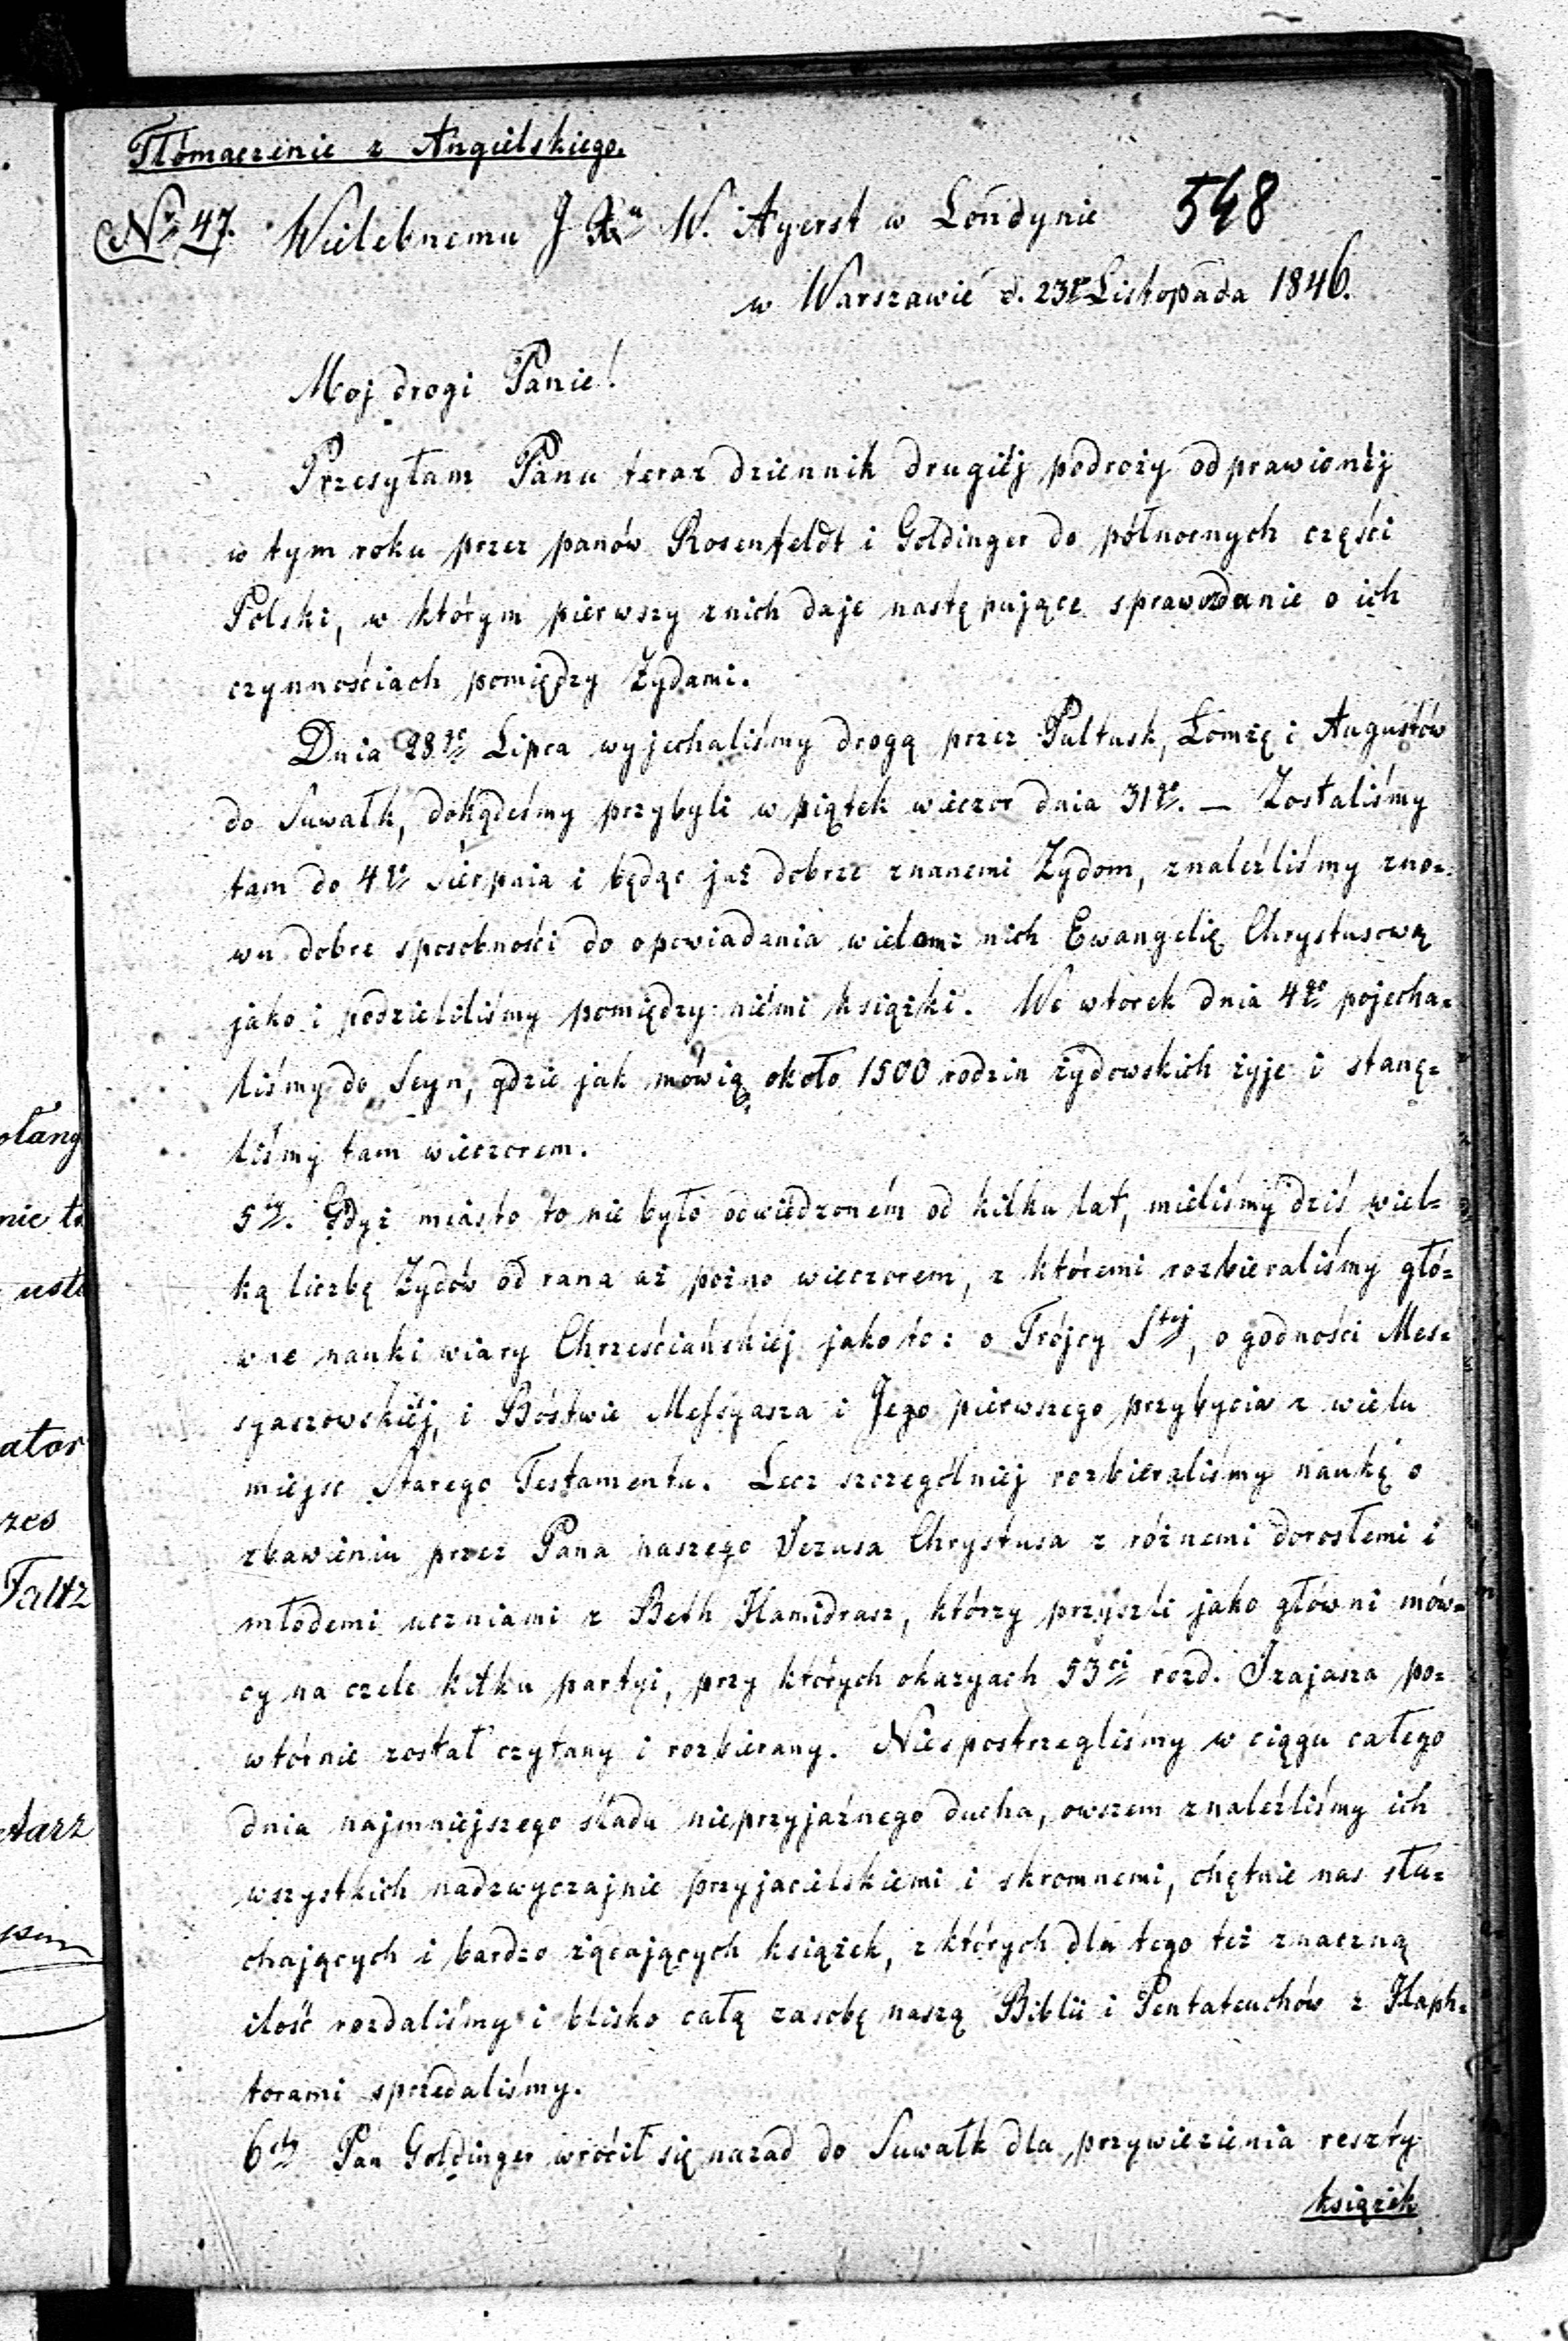 Tłómaczenie z Angielskiego.
548
No 47. Wielebnemu J Xu W. Ayerst w Londynie
w Warszawie d. 23go Listopada 1846.
Moj drogi Panie!
Przesyłam Panu teraz dziennik drugiéj podroży odprawionéj
w tym roku przez panów Rosenfeldt i Goldinger do północnych części
Polski, w którym pierwszy z nich daje następujące sprawozdanie o ich
czynnościach pomiędzy Żydami.
Dnia 28go Lipca wyjechaliśmy drogą przez Pultusk, Łomżę i Augustów
do Suwałk, dokądeśmy przybyli w piątek wieczor dnia 31go. — Zostaliśmy
tam do 4go Sierpnia i będąc już dobrze znanemi Żydom, znaleźliśmy zno=
wu dobre sposobności do opowiadania wielom z nich Ewangelię Chrystusową
jako i podzieliliśmy pomiędzy niémi książki. We wtorek dnia 4go pojecha=
liśmy do Seyn, gdzie jak mówią, około 1500 rodzin żydowskich żyje i stanę=
liśmy tam wieczorem.
5ty. Gdyż miasto to nie było odwiedzoném od kilku lat, mieliśmy dziś wiel=
ką liczbę Żydów od rana aż pożno wieczorem, z któremi rozbieraliśmy głó=
wne nauki wiary Chrześciańskiéj jako to: o Trójcy Stej, o godności Mes=
syaszowskiéj, i Bóstwie Messyasza i Jego pierwszego przybycia z wielu
miejsc Starego Testamentu. Lecz szczególniej rozbieraliśmy naukę o
zbawieniu przez Pana naszego Jezusa Chrystusa z różnemi dorosłemi i
młodemi uczniami z Beth Hamidrasz, którzy przyszli jako główni mów=
cy na czele kilku partyi, przy których okazyach 53ci rozd. Izajasza po=
wtórnie został czytany i rozbierany. Niespostrzegliśmy w ciągu całego
dnia najmniejszego śladu nieprzyjaźnego ducha, owszem znaleźliśmy ich
wszystkich nadzwyczajnie przyjacielskiemi i skromnemi, chętnie nas słu=
chających i bardzo żącających książek, z których dla tego też znaczną
ilość rozdaliśmy i blisko całą zasobę naszą Biblii i Pentateuchów z Haph=
torami sprzedaliśmy.
6sty Pan Goldinger wrócił się nazad do Suwałk dla przywiezienia reszty
książek